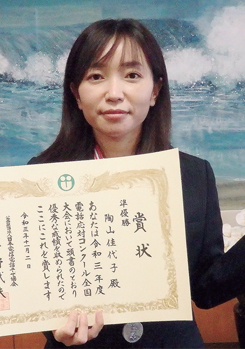 賞状
準優勝
陶山佳代子殿
あなたは令和三年度
電話応対コンクール全国
大会において頭書のとおり
優秀な成績を収められたので
ここにこれを賞します
令和三年十一月二日